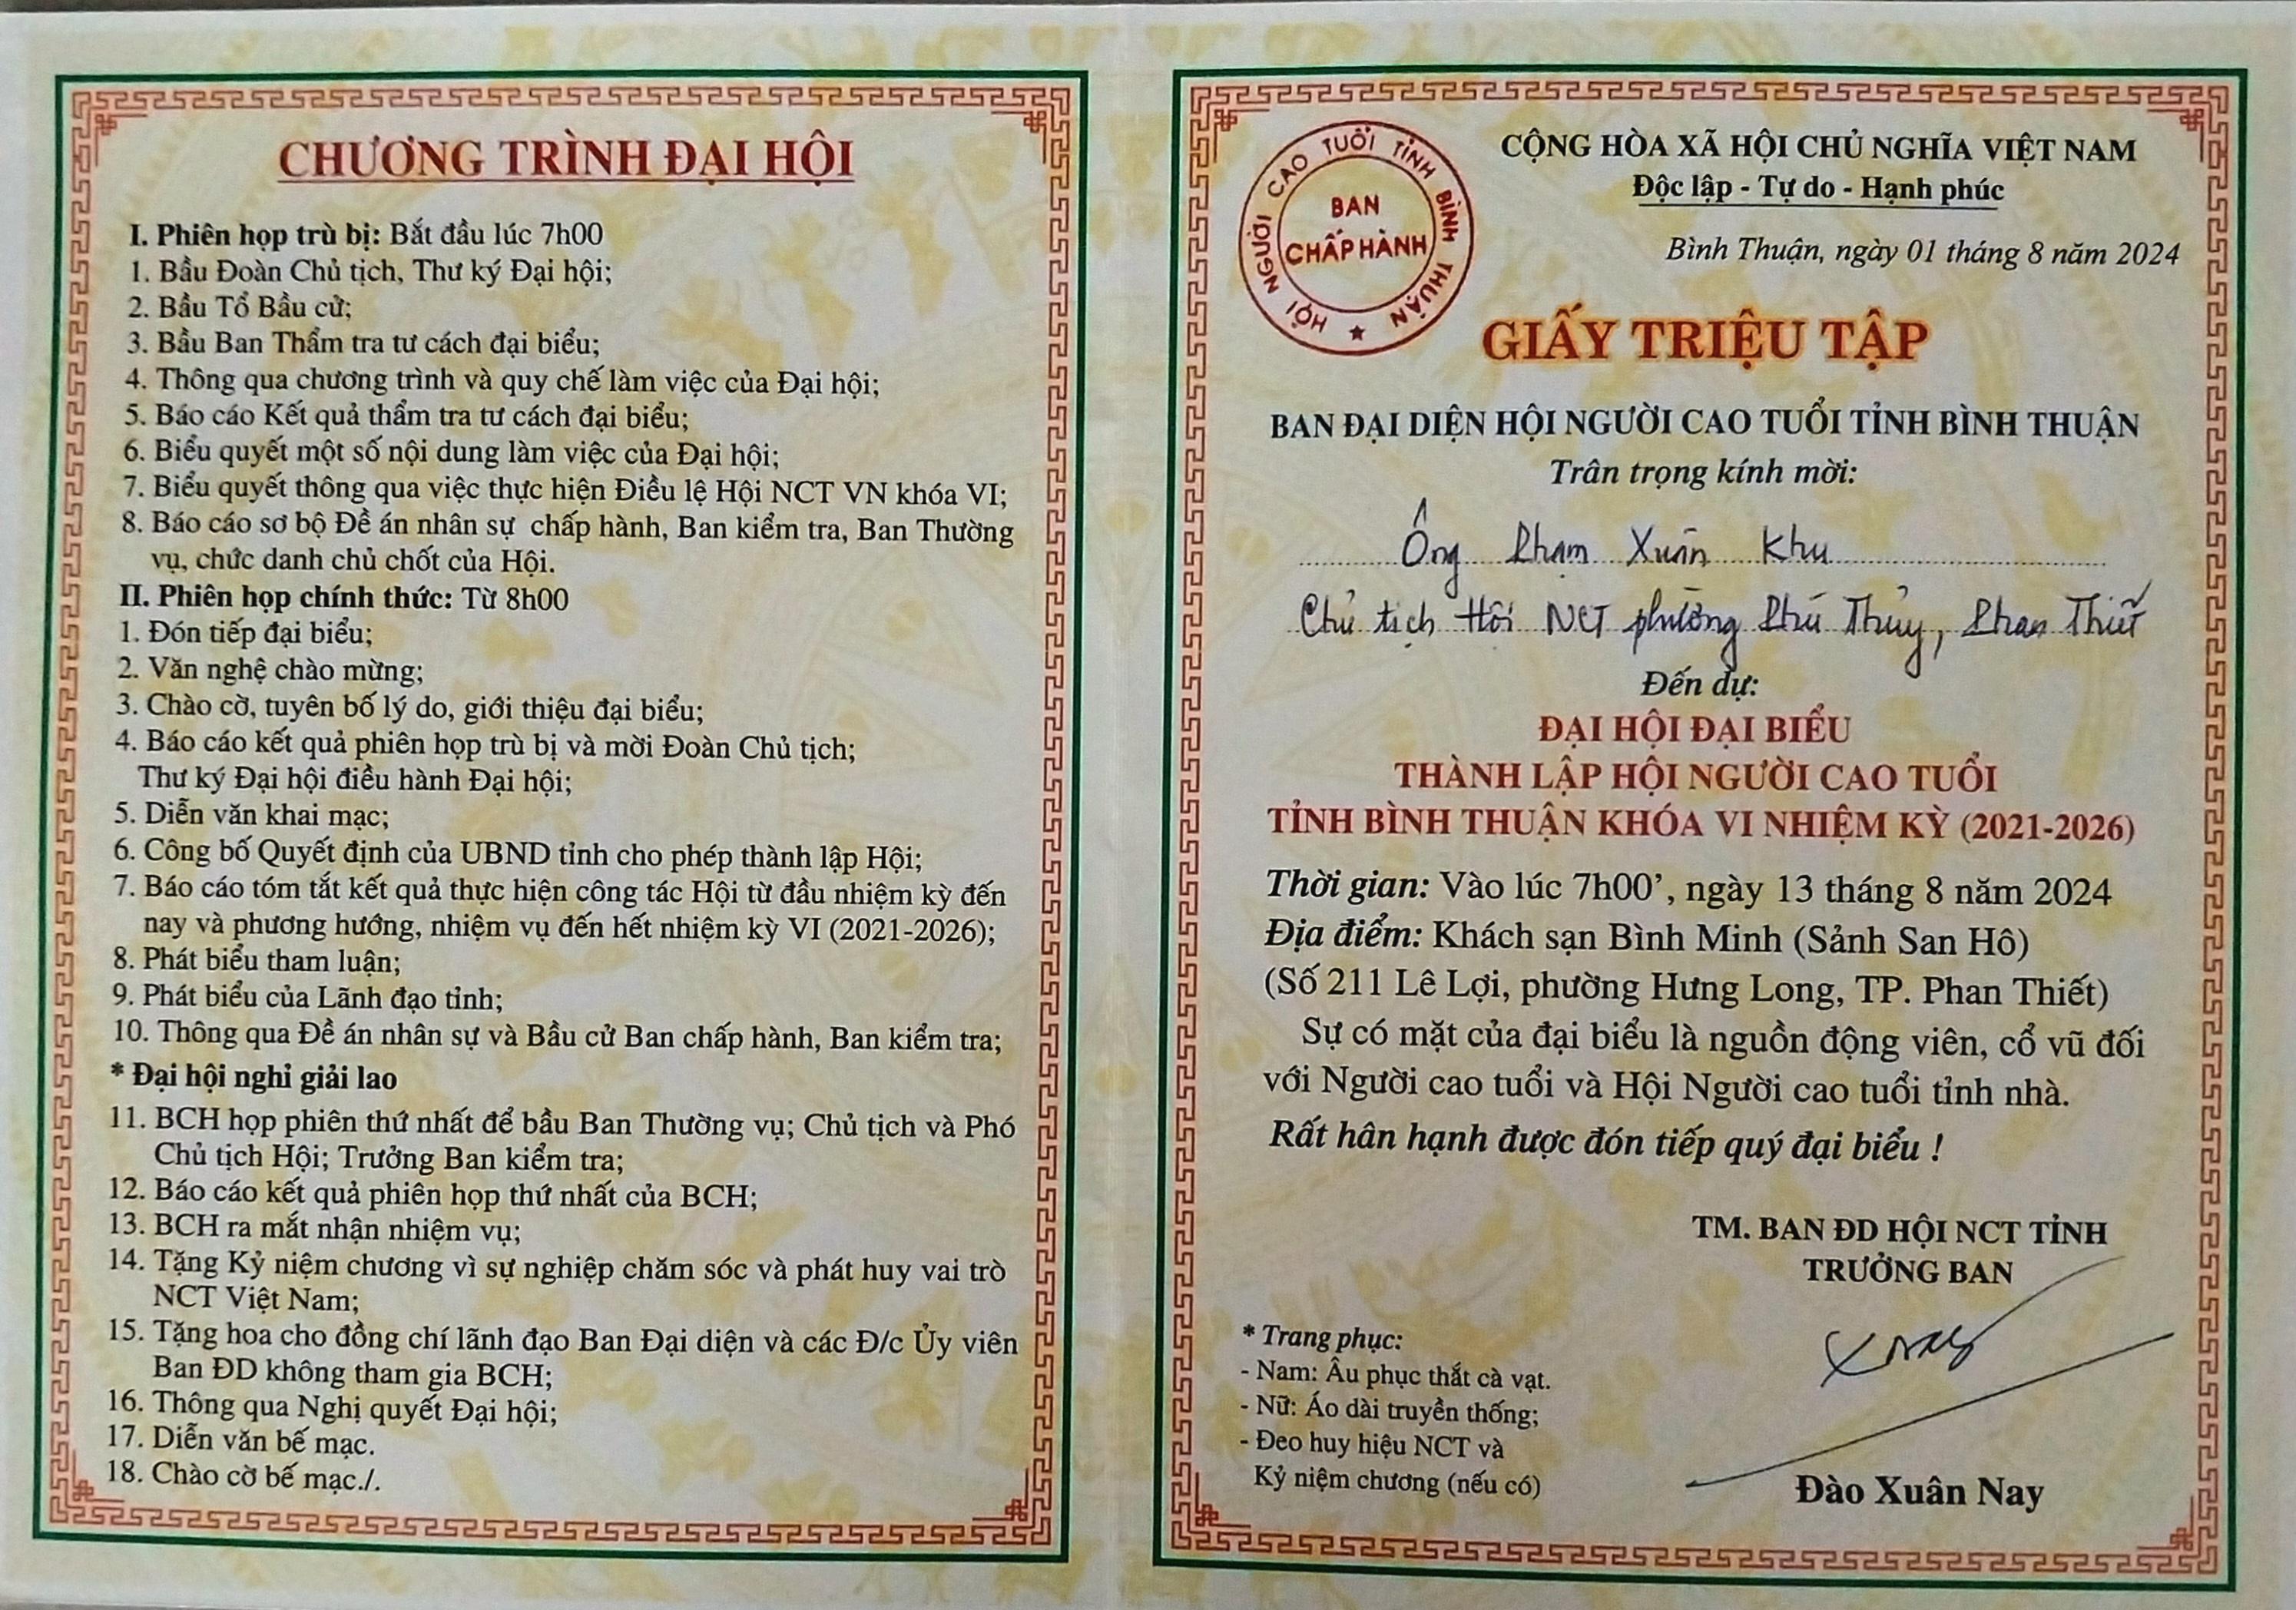 CHƯƠNG TRÌNH ĐẠI HỘI
I. Phiên họp trù bị: Bắt đầu lúc 7h00
1. Bầu Đoàn Chủ tịch, Thư ký Đại hội;
2. Bầu Tổ Bầu cử;
3. Bầu Ban Thẩm tra tư cách đại biểu;
4. Thông qua chương trình và quy chế làm việc của Đại hội;
5. Báo cáo Kết quả thẩm tra tư cách đại biểu;
6. Biểu quyết một số nội dung làm việc của Đại hội;
7. Biểu quyết thông qua việc thực hiện Điều lệ Hội NCT VN khóa VI;
8. Báo cáo sơ bộ Đề án nhân sự chấp hành, Ban kiểm tra, Ban Thường
vụ, chức danh chủ chốt của Hội.
II. Phiên họp chính thức: Từ 8h00
1. Đón tiếp đại biểu;
2. Văn nghệ chào mừng;
3. Chào cờ, tuyên bố lý do, giới thiệu đại biểu;
4. Báo cáo kết quả phiên họp trù bị và mời Đoàn Chủ tịch;
Thư ký Đại hội điều hành Đại hội;
5. Diễn văn khai mạc;
6. Công bố Quyết định của UBND tỉnh cho phép thành lập Hội;
7. Báo cáo tóm tắt kết quả thực hiện công tác Hội từ đầu nhiệm kỳ đến
nay và phương hướng, nhiệm vụ đến hết nhiệm kỳ VI (2021-2026);
8. Phát biểu tham luận;
9. Phát biểu của Lãnh đạo tỉnh;
10. Thông qua Đề án nhân sự và Bầu cử Ban chấp hành, Ban kiểm tra;
* Đại hội nghỉ giải lao
11. BCH họp phiên thứ nhất để bầu Ban Thường vụ; Chủ tịch và Phó
Chủ tịch Hội; Trưởng Ban kiểm tra;
12. Báo cáo kết quả phiên họp thứ nhất của BCH;
13. BCH ra mắt nhận nhiệm vụ;
14. Tặng Kỷ niệm chương vì sự nghiệp chăm sóc và phát huy vai trò
NCT Việt Nam;
15. Tặng hoa cho đồng chí lãnh đạo Ban Đại diện và các Đ/c Ủy viên
Ban ĐD không tham gia BCH;
16. Thông qua Nghị quyết Đại hội;
17. Diễn văn bế mạc.
18. Chào cờ bế mạc./.
HỘI NGƯỜI CAO TUỔI TỈNH BÌNH THUẬN
BAN
CHẤP HÀNH
CỘNG HÒA XÃ HỘI CHỦ NGHĨA VIỆT NAM
Độc lập - Tự do - Hạnh phúc
Bình Thuận, ngày 01 tháng 8 năm 2024
GIẤY TRIỆU TẬP
BAN ĐẠI DIỆN HỘI NGƯỜI CAO TUỔI TỈNH BÌNH THUẬN
Trân trọng kính mời:
Ông Phạm Xuân Khu
Chủ tịch Hội NCT phường Phú Thủy, Phan Thiết
Đến dự:
ĐẠI HỘI ĐẠI BIỂU
THÀNH LẬP HỘI NGƯỜI CAO TUỔI
TỈNH BÌNH THUẬN KHÓA VI NHIỆM KỲ (2021-2026)
Thời gian: Vào lúc 7h00’, ngày 13 tháng 8 năm 2024
Địa điểm: Khách sạn Bình Minh (Sảnh San Hô)
(Số 211 Lê Lợi, phường Hưng Long, TP. Phan Thiết)
Sự có mặt của đại biểu là nguồn động viên, cổ vũ đối
với Người cao tuổi và Hội Người cao tuổi tỉnh nhà.
Rất hân hạnh được đón tiếp quý đại biểu !
TM. BAN ĐD HỘI NCT TỈNH
TRƯỞNG BAN
* Trang phục:
- Nam: Âu phục thắt cà vạt.
- Nữ: Áo dài truyền thống;
- Đeo huy hiệu NCT và
Kỷ niệm chương (nếu có)
Đào Xuân Nay